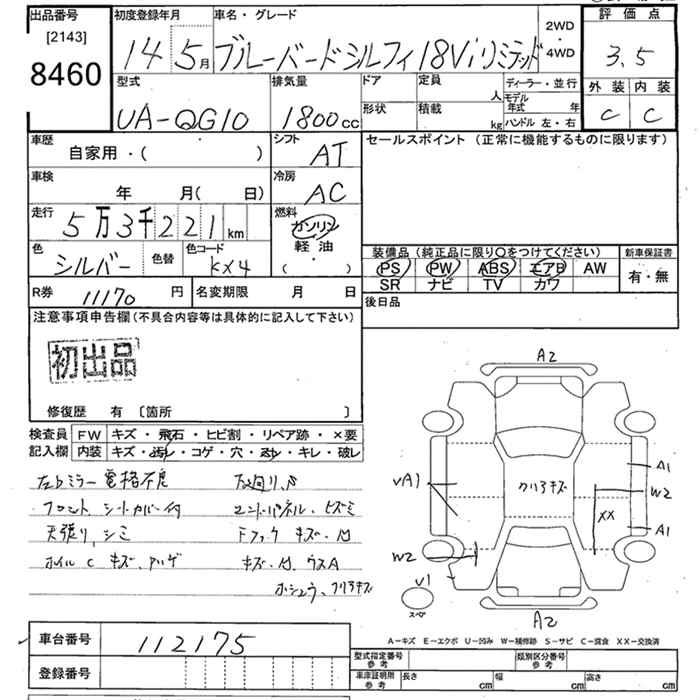 出品番号
[2143]
8460
初度登録年月
14 5月
車名・グレード
ブルーバードシルフィ 18Viリミテッド
2WD
・
4WD
評価点
3.5
外装 内装
C C
型式
UA-QG10
排気量
1800cc
ドア
形状
定員
人
積載
kg
ディーラー・並行
モデル年式 年
ハンドル 左・右
車歴
自家用・( )
シフト
AT
セールスポイント (正常に機能するものに限ります)
車検
年 月( 日)
冷房
AC
走行
5万3千221km
燃料
ガソリン
軽油
( )
色
シルバー
色替
色コード
KX4
装備品 (純正品に限り○をつけてください)
PS PW ABS エアB AW
SR ナビ TV カワ
新車保証書
有・無
R券
11170円
名変期限 月 日
後日品
注意事項申告欄(不具合内容等は具体的に記入して下さい)
初出品
修復歴 有 〔箇所 〕
検査員
記入欄
FW キズ・飛石・ヒビ割・リペア跡・×要
内装 キズ・汚レ・コゲ・穴・スレ・キレ・破レ
左右ミラー電格不良
フロントシートカバー付
エンドパネル、ヒズミ
天張り、シミ
Fフック キズ・凹
ホイルC キズ、ハゲ
キズ・凹、ウスA
A2
A1
W2
XX
A1
クリアキズ
W2
V1
スペア
A2
A-キズ E-エクボ U-凹み W-補修跡 S-サビ C-腐食 XX-交換済
車台番号
112175
登録番号
型式指定番号
参考
類別区分番号
参考
車庫証明用
参考
長さ cm
幅 cm
高さ cm